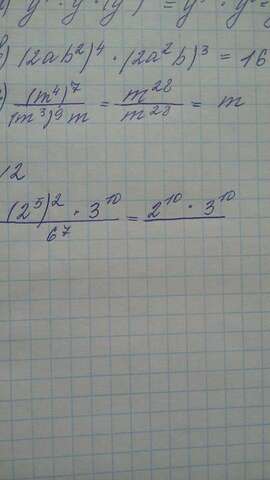 (2ab²)⁴ · (2a²b)³ = 16
(m⁴)⁷ / (m³)⁹m = m²⁸ / m²⁸ = m
12
(2⁵)² · 3¹⁰ / 6⁷ = 2¹⁰ · 3¹⁰